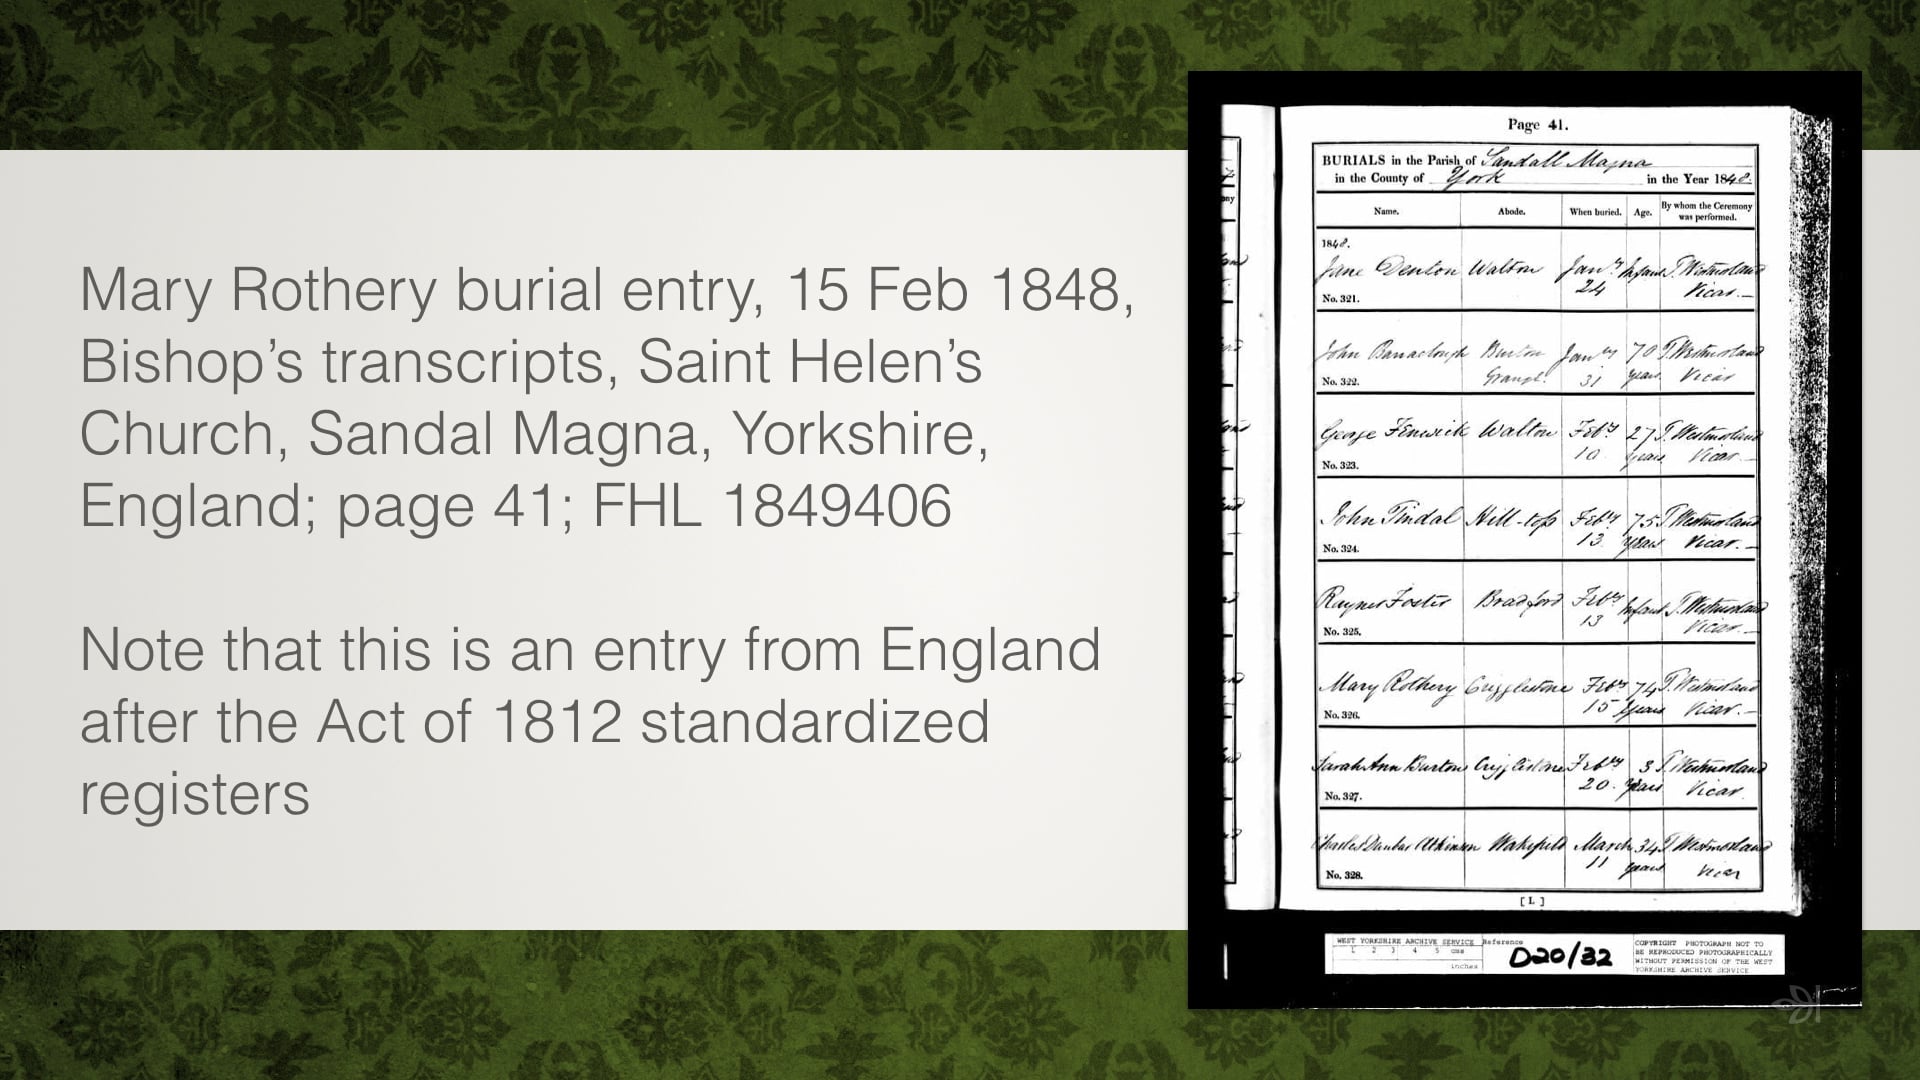 Mary Rothery burial entry, 15 Feb 1848,
Bishop’s transcripts, Saint Helen’s
Church, Sandal Magna, Yorkshire,
England; page 41; FHL 1849406
Note that this is an entry from England
after the Act of 1812 standardized
registers
Page 41.
BURIALS in the Parish of Sandall Magna
in the County of York in the Year 1848.
Name. Abode. When buried. Age. By whom the Ceremony was performed.
1848.
Jane Denton Walton Jany Infant T. Westmorland
No. 321. 24 Vicar.
John Barraclough Burton Jany 70 T. Westmorland
No. 322. 31 years Vicar
George Fenwick Walton Feby 27 T. Westmorland
No. 323. 10 years Vicar.
John Tindal Hill-top Feby 75 T. Westmorland
No. 324. 13 years Vicar.
Foster Bradford Feby Infant T. Westmorland
No. 325. 13 Vicar.
Mary Rothery Crigglestone Feby 74 T. Westmorland
No. 326. 15 years Vicar.
Sarah Ann Burton Crigglestone Feby 3 T. Westmorland
No. 327. 20. years Vicar
Charles Dunbar Atkinson Wakefield March 34 T. Westmorland
No. 328. 11 years Vicar
[ L ]
WEST YORKSHIRE ARCHIVE SERVICE Reference
1 2 3 4 5 cms
inches
D20/32
COPYRIGHT PHOTOGRAPH NOT TO
BE REPRODUCED PHOTOGRAPHICALLY
WITHOUT PERMISSION OF THE WEST
YORKSHIRE ARCHIVE SERVICE